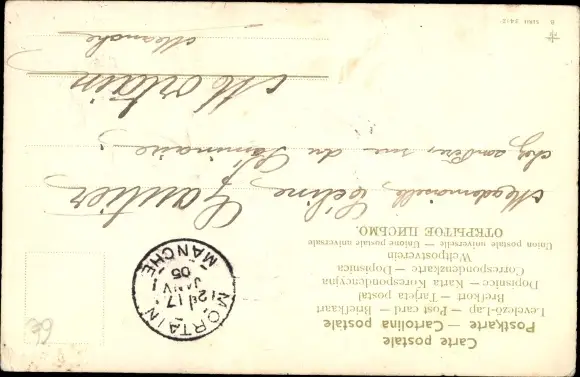 Carte postale
Postkarte — Cartolina postale
Levelező-Lap — Post card — Briefkaart
Brefkort — Tarjeta postal
Dopisnice — Karta Korespondencyjna
Correspondenzkarte — Dopisnica
Weltpostverein
Union postale universelle — Unione postale universale
ОТКРЫТОЕ ПИСЬМО.
MORTAIN
2E
17
JANV
05
MANCHE
6€
Mademoiselle Céline Gautier
chez rue du Séminaire
Mortain
Manche